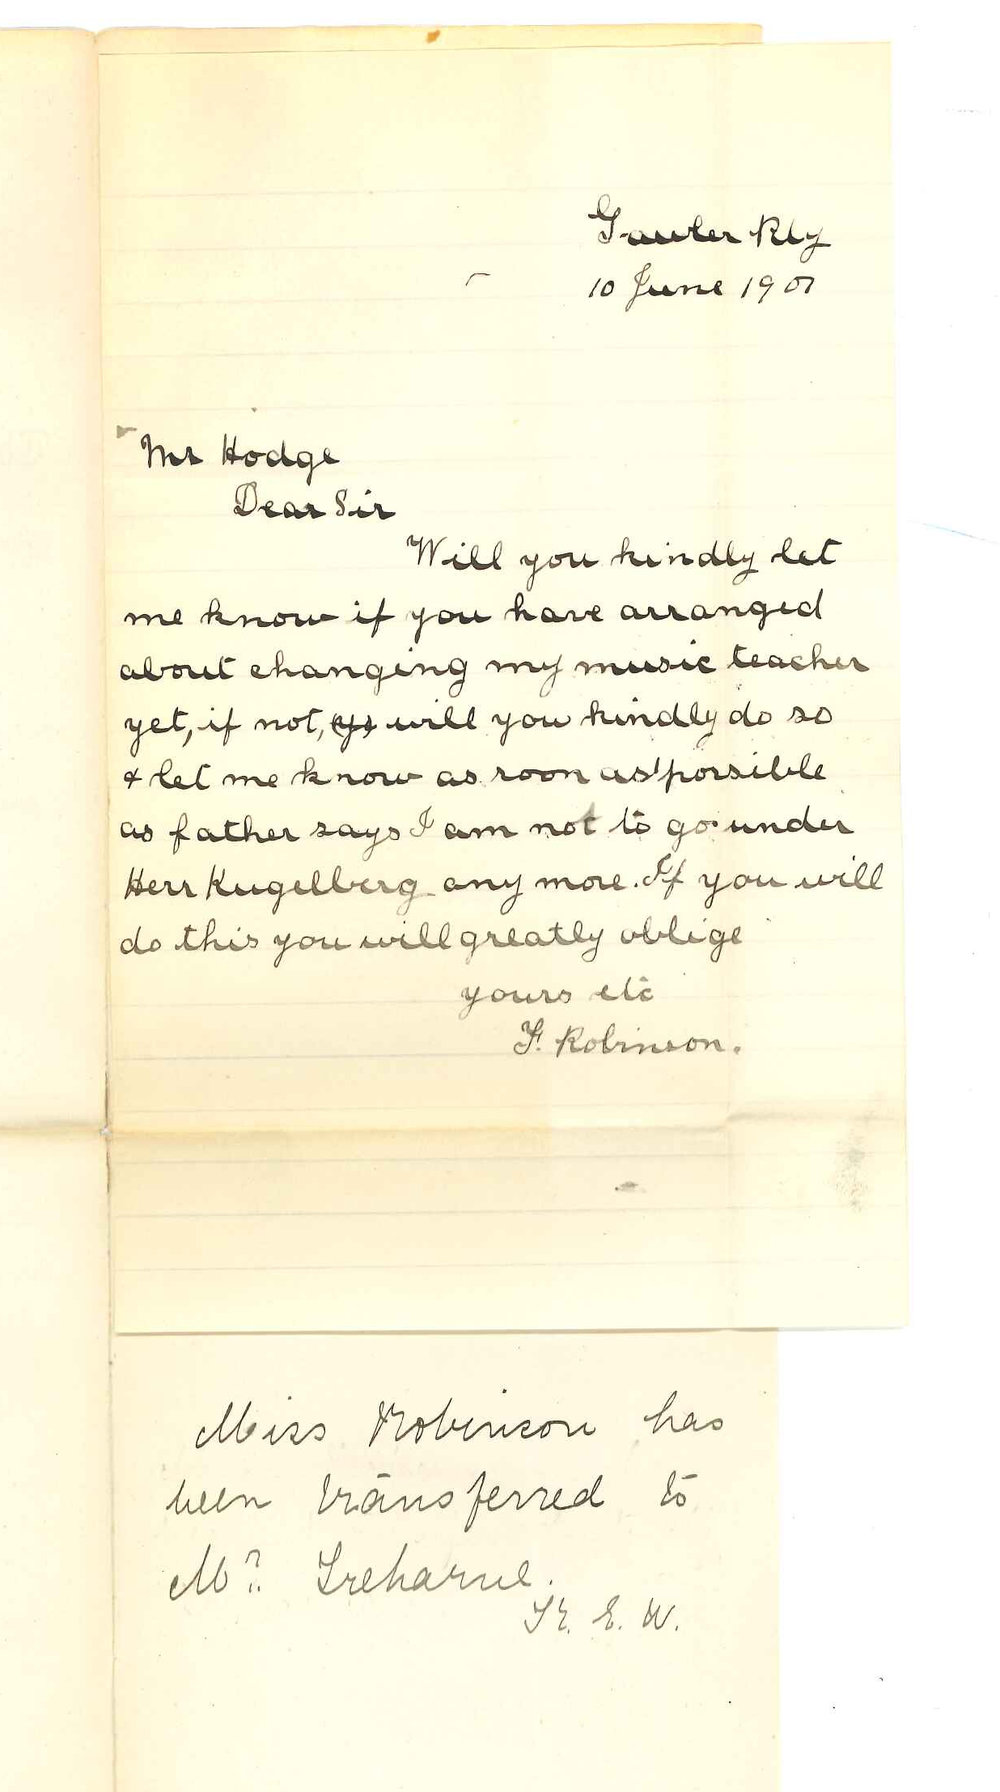 Gawler Rly
10 June 1901
Mr Hodge
Dear Sir
Will you kindly let
me know if you have arranged
about changing my music teacher
yet, if not, will you kindly do so
& let me know as soon as possible
as father says I am not to go under
Herr Kugelberg any more. If you will
do this you will greatly oblige
yours etc
F. Robinson.
Miss Robinson has
been transferred to
Mr. Treharne.
E. W.